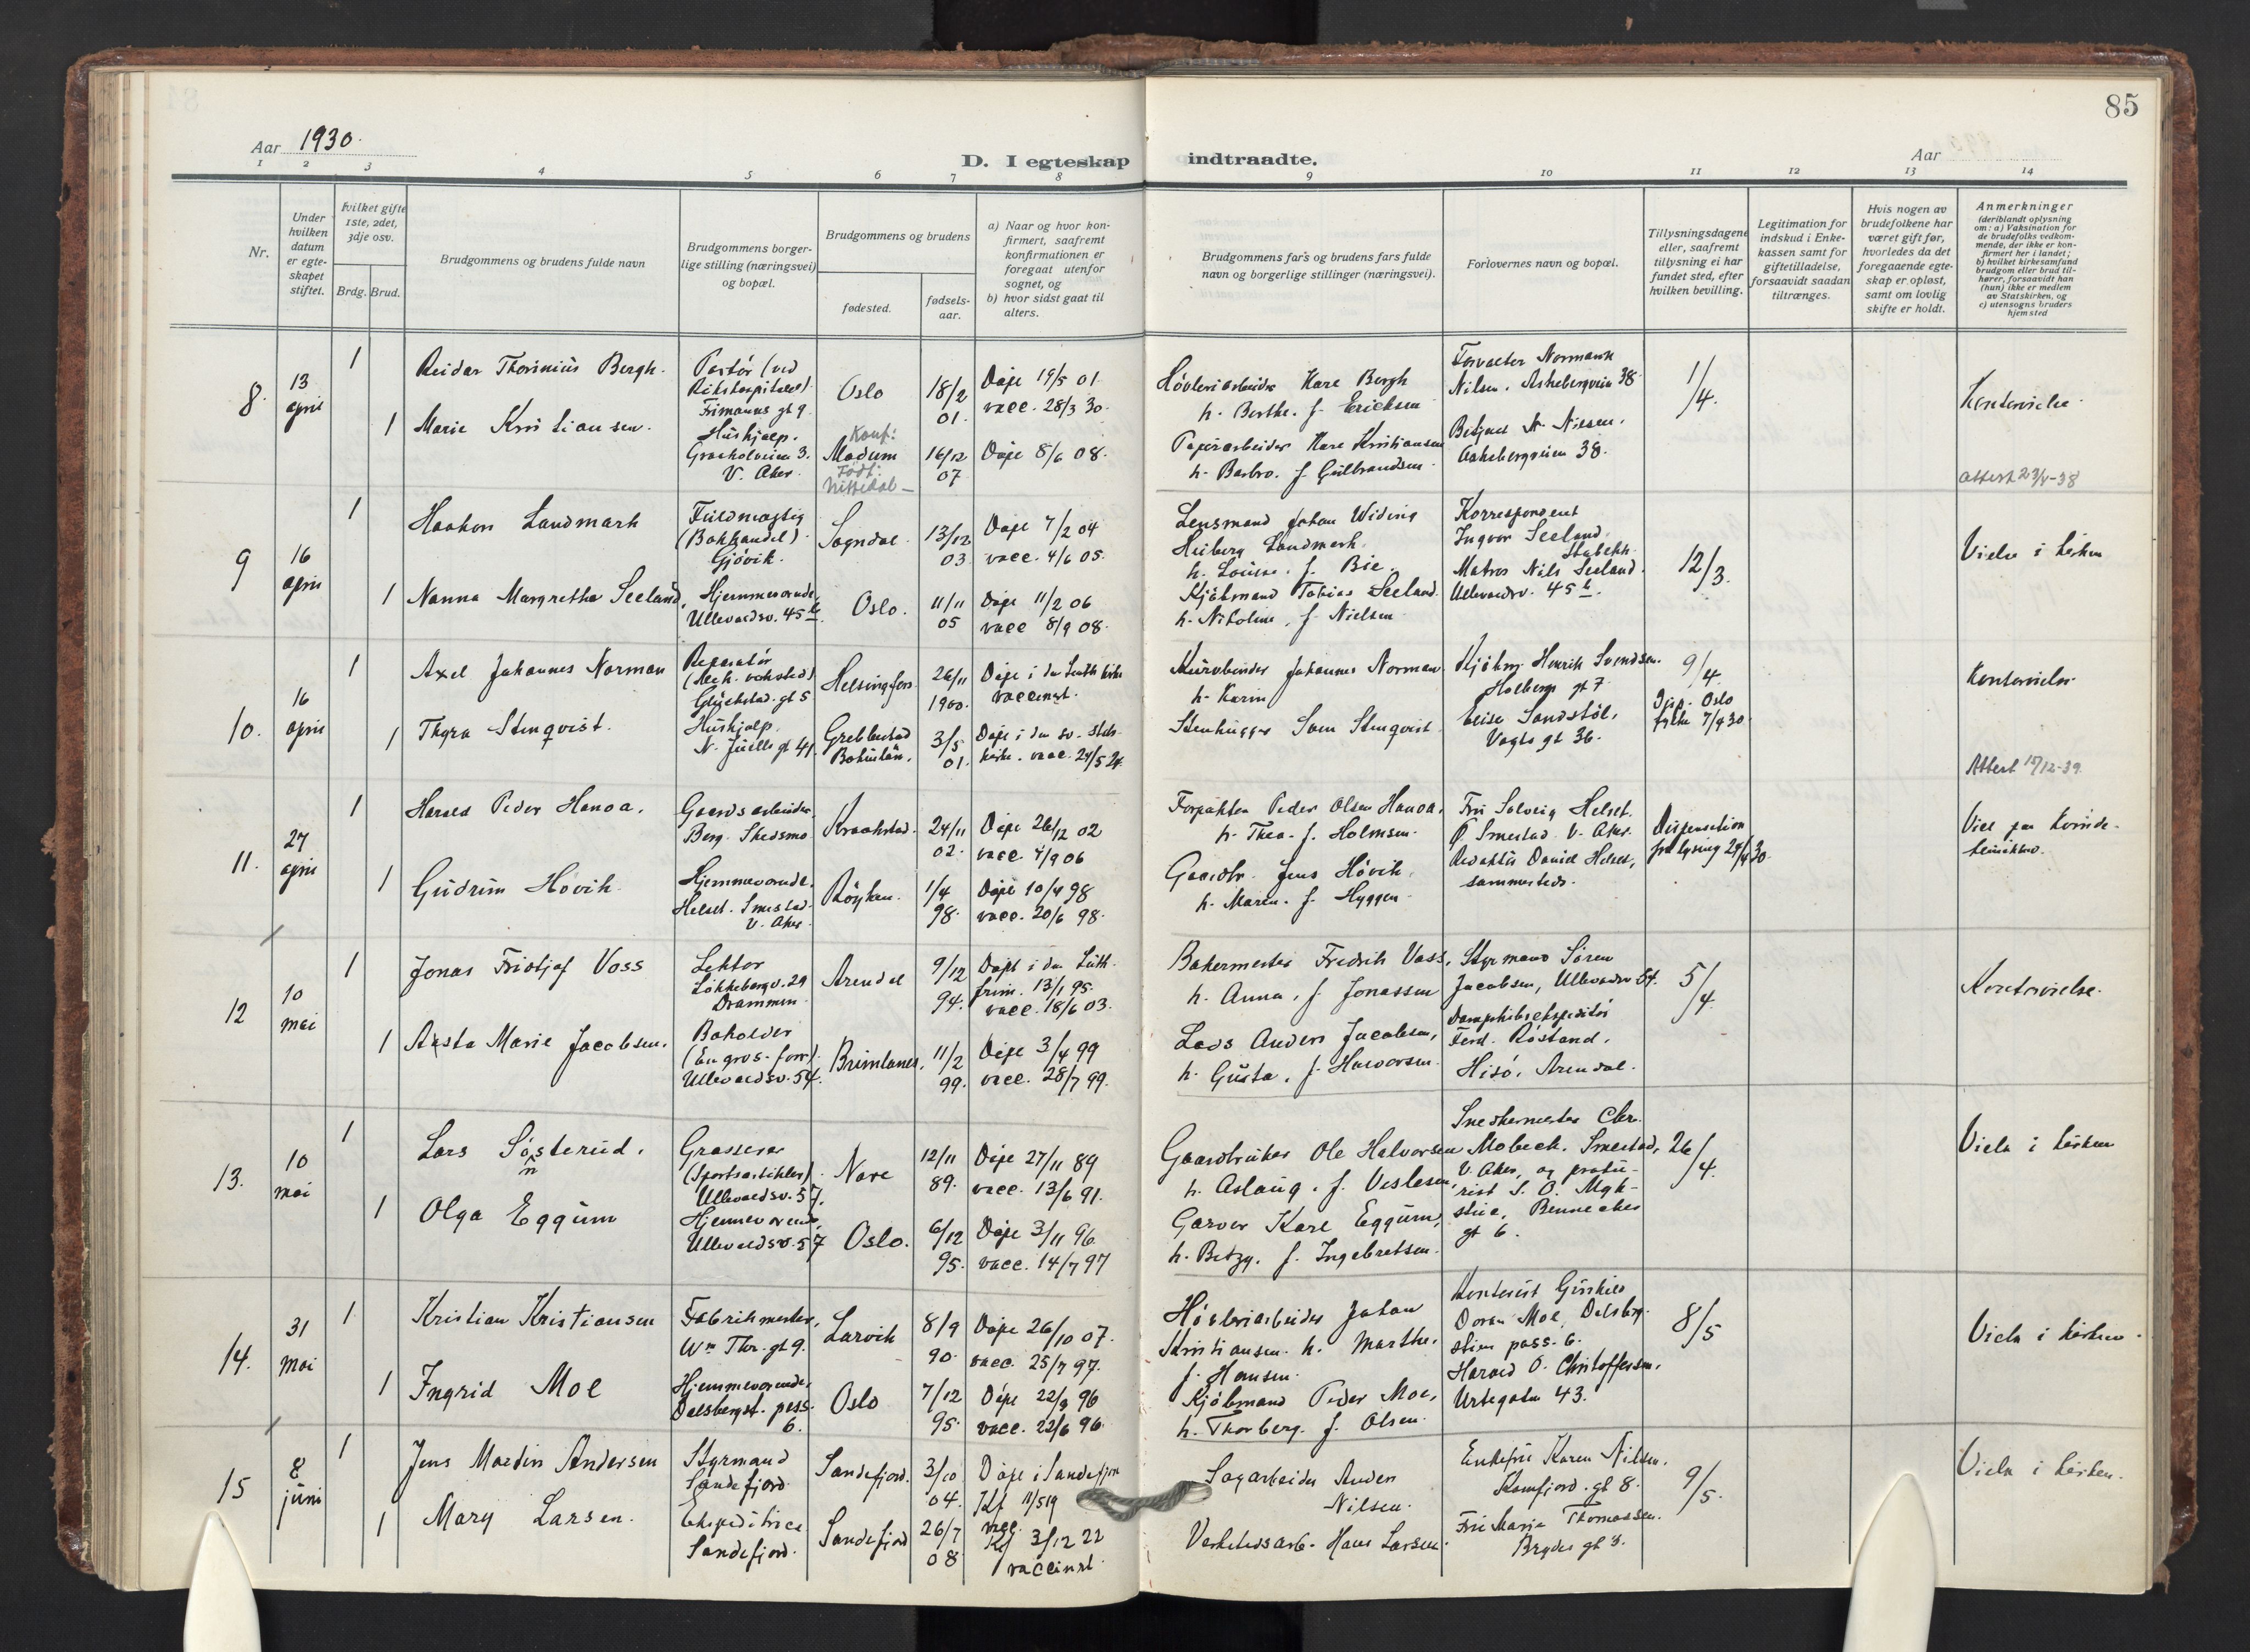 85
Aar 1930.
Aar
D. I egteskap indtraadte.
1 2 3 4 5 6 7 8 9 10 11 12 13 14
Nr.
Under
hvilken
datum
er egte-
skapet
stiftet.
Hvilket gifte
1ste, 2det,
3dje osv.
Brdg. Brud.
Brudgommens og brudens fulde navn
Brudgommens borger-
lige stilling (næringsvei)
og bopæl.
Brudgommens og brudens
fødested.
fødsels-
aar.
a) Naar og hvor kon-
firmert, saafremt
konfirmationen er
foregaat utenfor
sognet, og
b) hvor sidst gaat til
alters.
Brudgommens fars og brudens fars fulde
navn og borgerlige stillinger (næringsvei).
Forlovernes navn og bopæl.
Tillysningsdagene
eller, saafremt
tillysning ei har
fundet sted, efter
hvilken bevilling.
Legitimation for
indskud i Enke-
kassen samt for
giftetilladelse,
forsaavidt saadan
tiltrænges.
Hvis nogen av
brudefolkene har
været gift før,
hvorledes da det
foregaaende egte-
skap er opløst,
samt om lovlig
skifte er holdt.
Anmerkninger
(deriblandt oplysning
om: a) Vaksination for
de brudefolks vedkom-
mende, der ikke er kon-
firmert her i landet;
b) hvilket kirkesamfund
brudgom eller brud til-
hører, forsaavidt han
(hun) ikke er medlem
av Statskirken, og
c) utensogns bruders
hjemsted
8.
13
april
1
Reidar Thorinius Bergh.
Pastør (ved
Rikshospitalet)
Frimanns gt 9.
Oslo
18/2
01.
Døpt 19/5 01.
vacc. 28/3 30.
Høvleriarbeider Kare Bergh
h. Berthe. f. Ericksen
Forvalter Normann
Nilsen. Akebergveien 38
1/4.
Kontorvielse
1
Marie Kristiansen.
Hushjælp.
V. Aker.
Konf:
Modum
Født:
Nittedal
16/12
07
Døpt 8/6 08.
Papirarbeider Kare Kristiansen
h. Barbro. f. Gulbrandsen
Betjent N. Nilsen.
Aakebergveien 38.
attest 23/8-38
9
16
april
1
Haakon Landmark
Fuldmægtig
(Bokhandel)
Gjøvik.
Sogndal.
13/12
03.
Døpt 7/2 04
vacc. 4/6 05.
Lensmand Johan Widing
Heiberg Landmark.
h. Louise. f. Bie.
Korrespondent
Ingvar Seeland.
Stabekk.
12/3.
Vielse i kirken
1
Nanna Margrethe Seeland,
Hjemmeværende,
Ullevaldsv. 45 b.
Oslo.
11/11
05
Døpt 11/2 06
vacc 8/9 08.
Kjøbmand Tobias Seeland.
h. Nikoline, f. Nielsen
Matros Nils Seeland.
Ullevaldsv. 45 b.
10.
16
april
1
Axel Johannes Norman
Reparatør
(Mek. verksted)
Glückstad. gt 5
Helsingfors
26/11
1900.
Døpt i den Luth. kirke
vaccinert.
Murarbeider Johannes Norman
h. Karin
Kjøbm. Henrik Svendsen.
Holbergs gt 7
9/4.
Kontorvielse
1
Thyra Stenqvist.
Hushjælp.
N. Juels gt 41.
Grebbestad
Bohuslän.
3/5
01.
Døpt i den sv. stats-
kirke. vacc. 24/5 24.
Stenhugger Sven Stenqvist
Elise Sandstøl,
Vogts gt 36.
Disp. Oslo
fylke 7/4 30.
Attest 15/12-39.
11.
27
april
1
Harald Peder Hanoa.
Gaardsarbeider
Berg. Skedsmo
Kraakstad.
24/11
02.
Døpt 26/12 02
vacc. 4/9 06
Forpakter Peder Olsen Hanoa.
h. Thea. f. Holmsen.
Fru Solveig Helset.
Ø. Smestad. V. Aker.
Dispensation
fra lysing 24/4 30.
Viet paa Kvinde-
klinikken.
1
Gudrun Høvik.
Hjemmeværende.
Helset. Smestad
V. Aker
Røyken.
1/4
98.
Døpt 10/4 98
vacc. 20/6 98.
Gaardbr. Jens Høvik.
h. Maren. f. Hyggen.
Redaktør Daniel Helset,
sammesteds.
12
10
mai
1
Jonas Fridtjof Voss
Lektor
Løkkebergv. 29
Drammen
Arendal
9/12
94.
Døpt i den Luth.
frim. 13/1 95.
vacc. 18/6 03.
Bakermester Fredrik Voss,
h. Anna, f. Jonassen
Styrmand Søren
Jacobsen, Ullevaldsv. 54.
5/4.
Kontorvielse.
1
Aasta Marie Jacobsen.
Bokholder
(En gros-forr.)
Ullevaldsv. 54.
Brimlanes.
11/2
99.
Døpt 3/4 99
vacc. 28/7 99.
Lods Anders Jacobsen,
h. Gusta, f. Halvorsen.
Dampskibsekspeditør
Ferd. Røstand.
Hisø, Arendal.
13.
10
mai
1
Lars Søsterud.
n
Grosserer
(Sportsartikler)
Ullevaldsv. 57.
Nore
12/11
89.
Døpt 27/11 89
vacc. 13/6 91.
Gaardbruker Ole Halvorsen
h. Aslaug. f. Veslesen,
Snedkermester Chr.
Mobeck. Smestad,
V. Aker, og proku-
rist S. O. Myk-
26/4.
Vielse i kirken
1
Olga Eggum
Hjemmeværende,
Ullevaldsv. 57
Oslo.
6/12
95.
Døpt 3/11 96.
vacc. 14/7 97
Garver Karl Eggum,
h. Betzy. f. Ingebretsen.
stue, Benneches
gt 6.
14.
31
mai
1
Kristian Kristiansen
Fabrikmester,
Wm Thr. gt 9.
Larvik
8/9
90.
Døpt 26/10 07.
vacc. 25/7 97.
Høvleriarbeider Johan
Kristiansen. h. Marthe.
f. Hansen.
Kontorist
Moe, Dalsberg-
stien pass. 6.
8/5
Vielse i kirken.
1
Ingrid Moe
Hjemmeværende.
Dalsbergst. pass.
6.
Oslo
7/12
95.
Døpt 22/3 96
vacc. 22/6 96.
Kjøbmand Peder Moe,
h. Thorberg. f. Olsen.
Harald O. Christoffersen,
Urtegaten 43.
15
8
juni
1
Jens Martin Andersen
Styrmand
Sandefjord.
Sandefjord.
3/10
04.
Døpt i Sandefjord
Kf 11/5 19
vacc.
Sagarbeider Anders
Nilsen.
Enkefru Karen Nilsen.
Kamfjord. gt 8.
9/5.
Vielse i kirken.
1
Mary Larsen.
Ekspeditrice
Sandefjord.
Sandefjord
26/7
08
Kf 3/12 22
vaccinert
Verkstedsarb. Hans Larsen.
Fru Marie Thomassen.
Brydes gt 3.